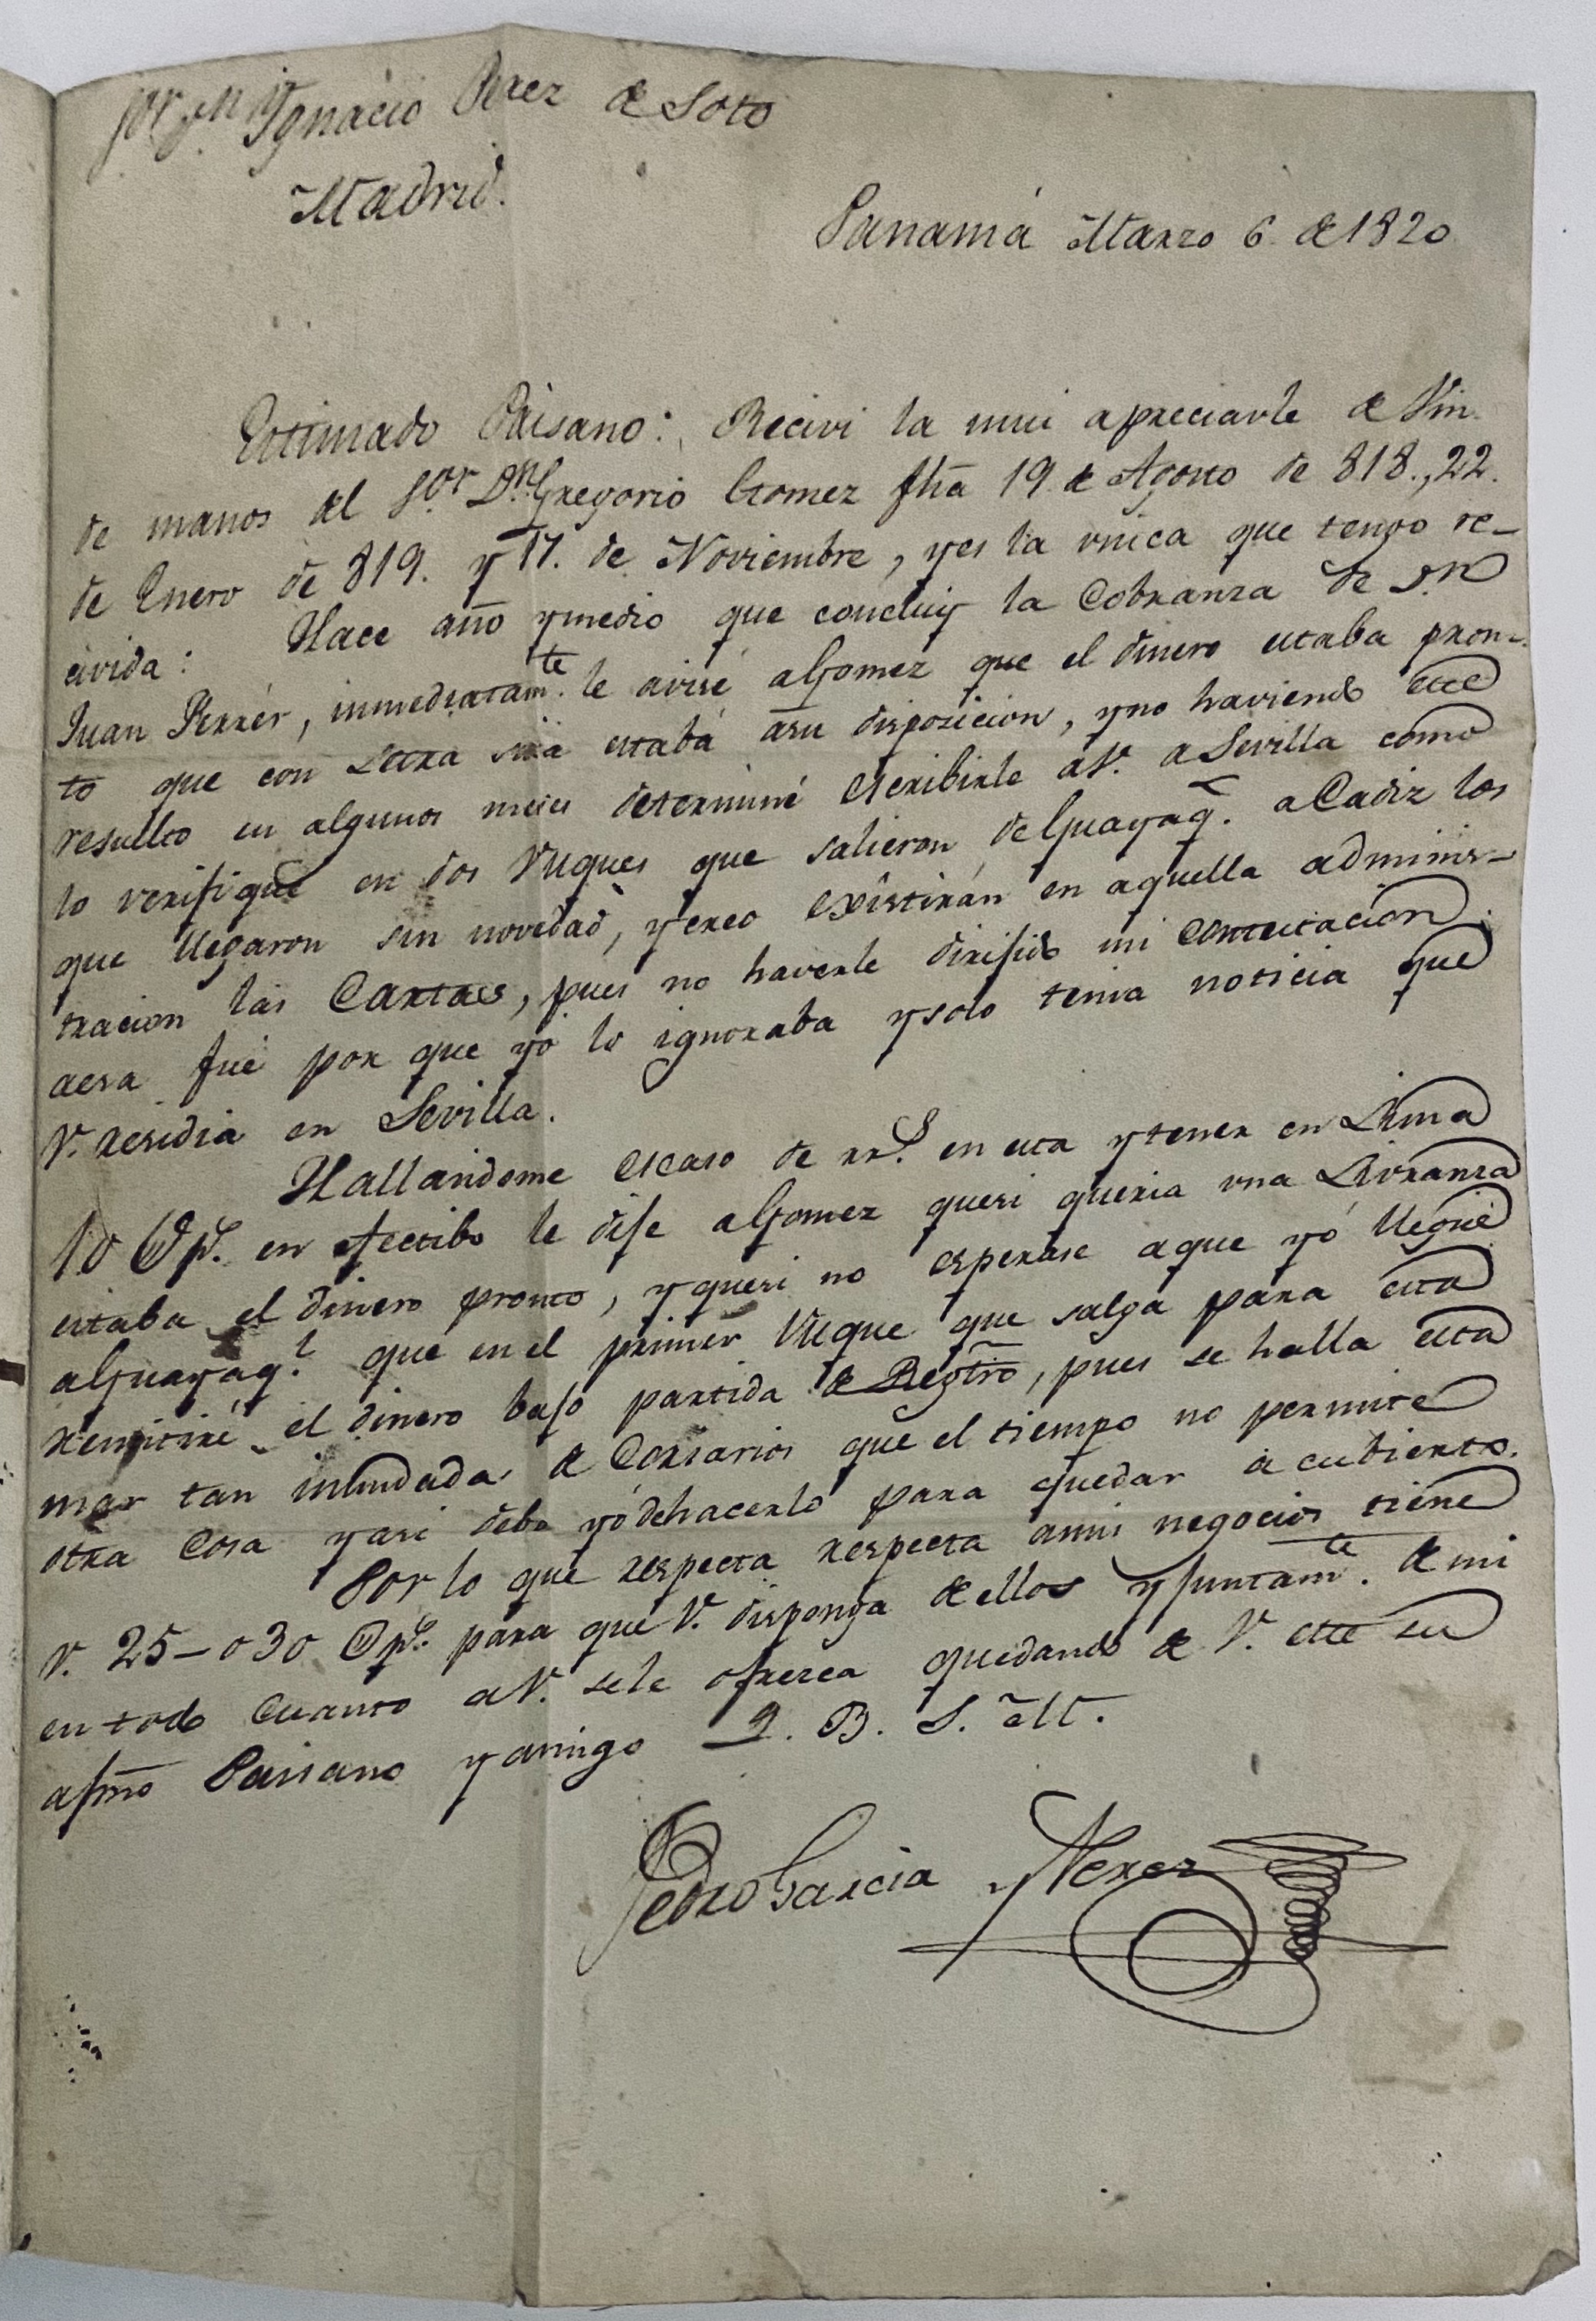 Sor Dn Ygnacio Perez de Soto
Madrid.
Panamá Marzo 6 de 1820
Estimado Paisano: Recivi la mui apreciavle de Vm.
de manos del Sor. Dn. Gregorio Gomez fha 19 de Agosto de 818., 22.
de Enero de 819. y 17. de Noviembre, y es la unica que tengo re-
civida: Hace año y medio que concluy la Cobranza de Dn
Juan Ferrér, inmediatamte. le avisé a Gomez que el dinero estaba pron-
to que con Letra suia estaba a su disposicion, y no haviendo este
resuelto en algunos meses determiné escribirle a V. a Sevilla como
lo verifiqué en dos Buques que salieron de Guayaql. a Cadiz los
que llegaron sin novedad, y creo existirán en aquella adminis-
tracion las Cartas, pues no haverle dirijido mi contestacion
a esa fué por que yó lo ignoraba y solo tenia noticia que
V. residia en Sevilla.
Hallandome escaso de rrs. en esta y tener en Lima
10 @ ps. en efectibo le dije a Gomez que si queria una Livranza
estaba el dinero pronto, y que si no esperase a que yó llegue
a Guayaql. que en el primer Buque que salga para esta
remitiré el dinero bajo partida de Regtro, pues se halla esta
mar tan inundada de Corsarios que el tiempo no permite
otra cosa y asi debo yó de hacerlo para quedar a cubierto.
Por lo que respecta respecta a mis negocios tiene
V. 25-o 30 @ ps. para que V. disponga de ellos y juntamte. de mi
en todo cuanto a V. se le ofrezca quedando de V. este su
afmo Paisano y amigo Q. B. S. M.
Pedro Garcia y Nerez